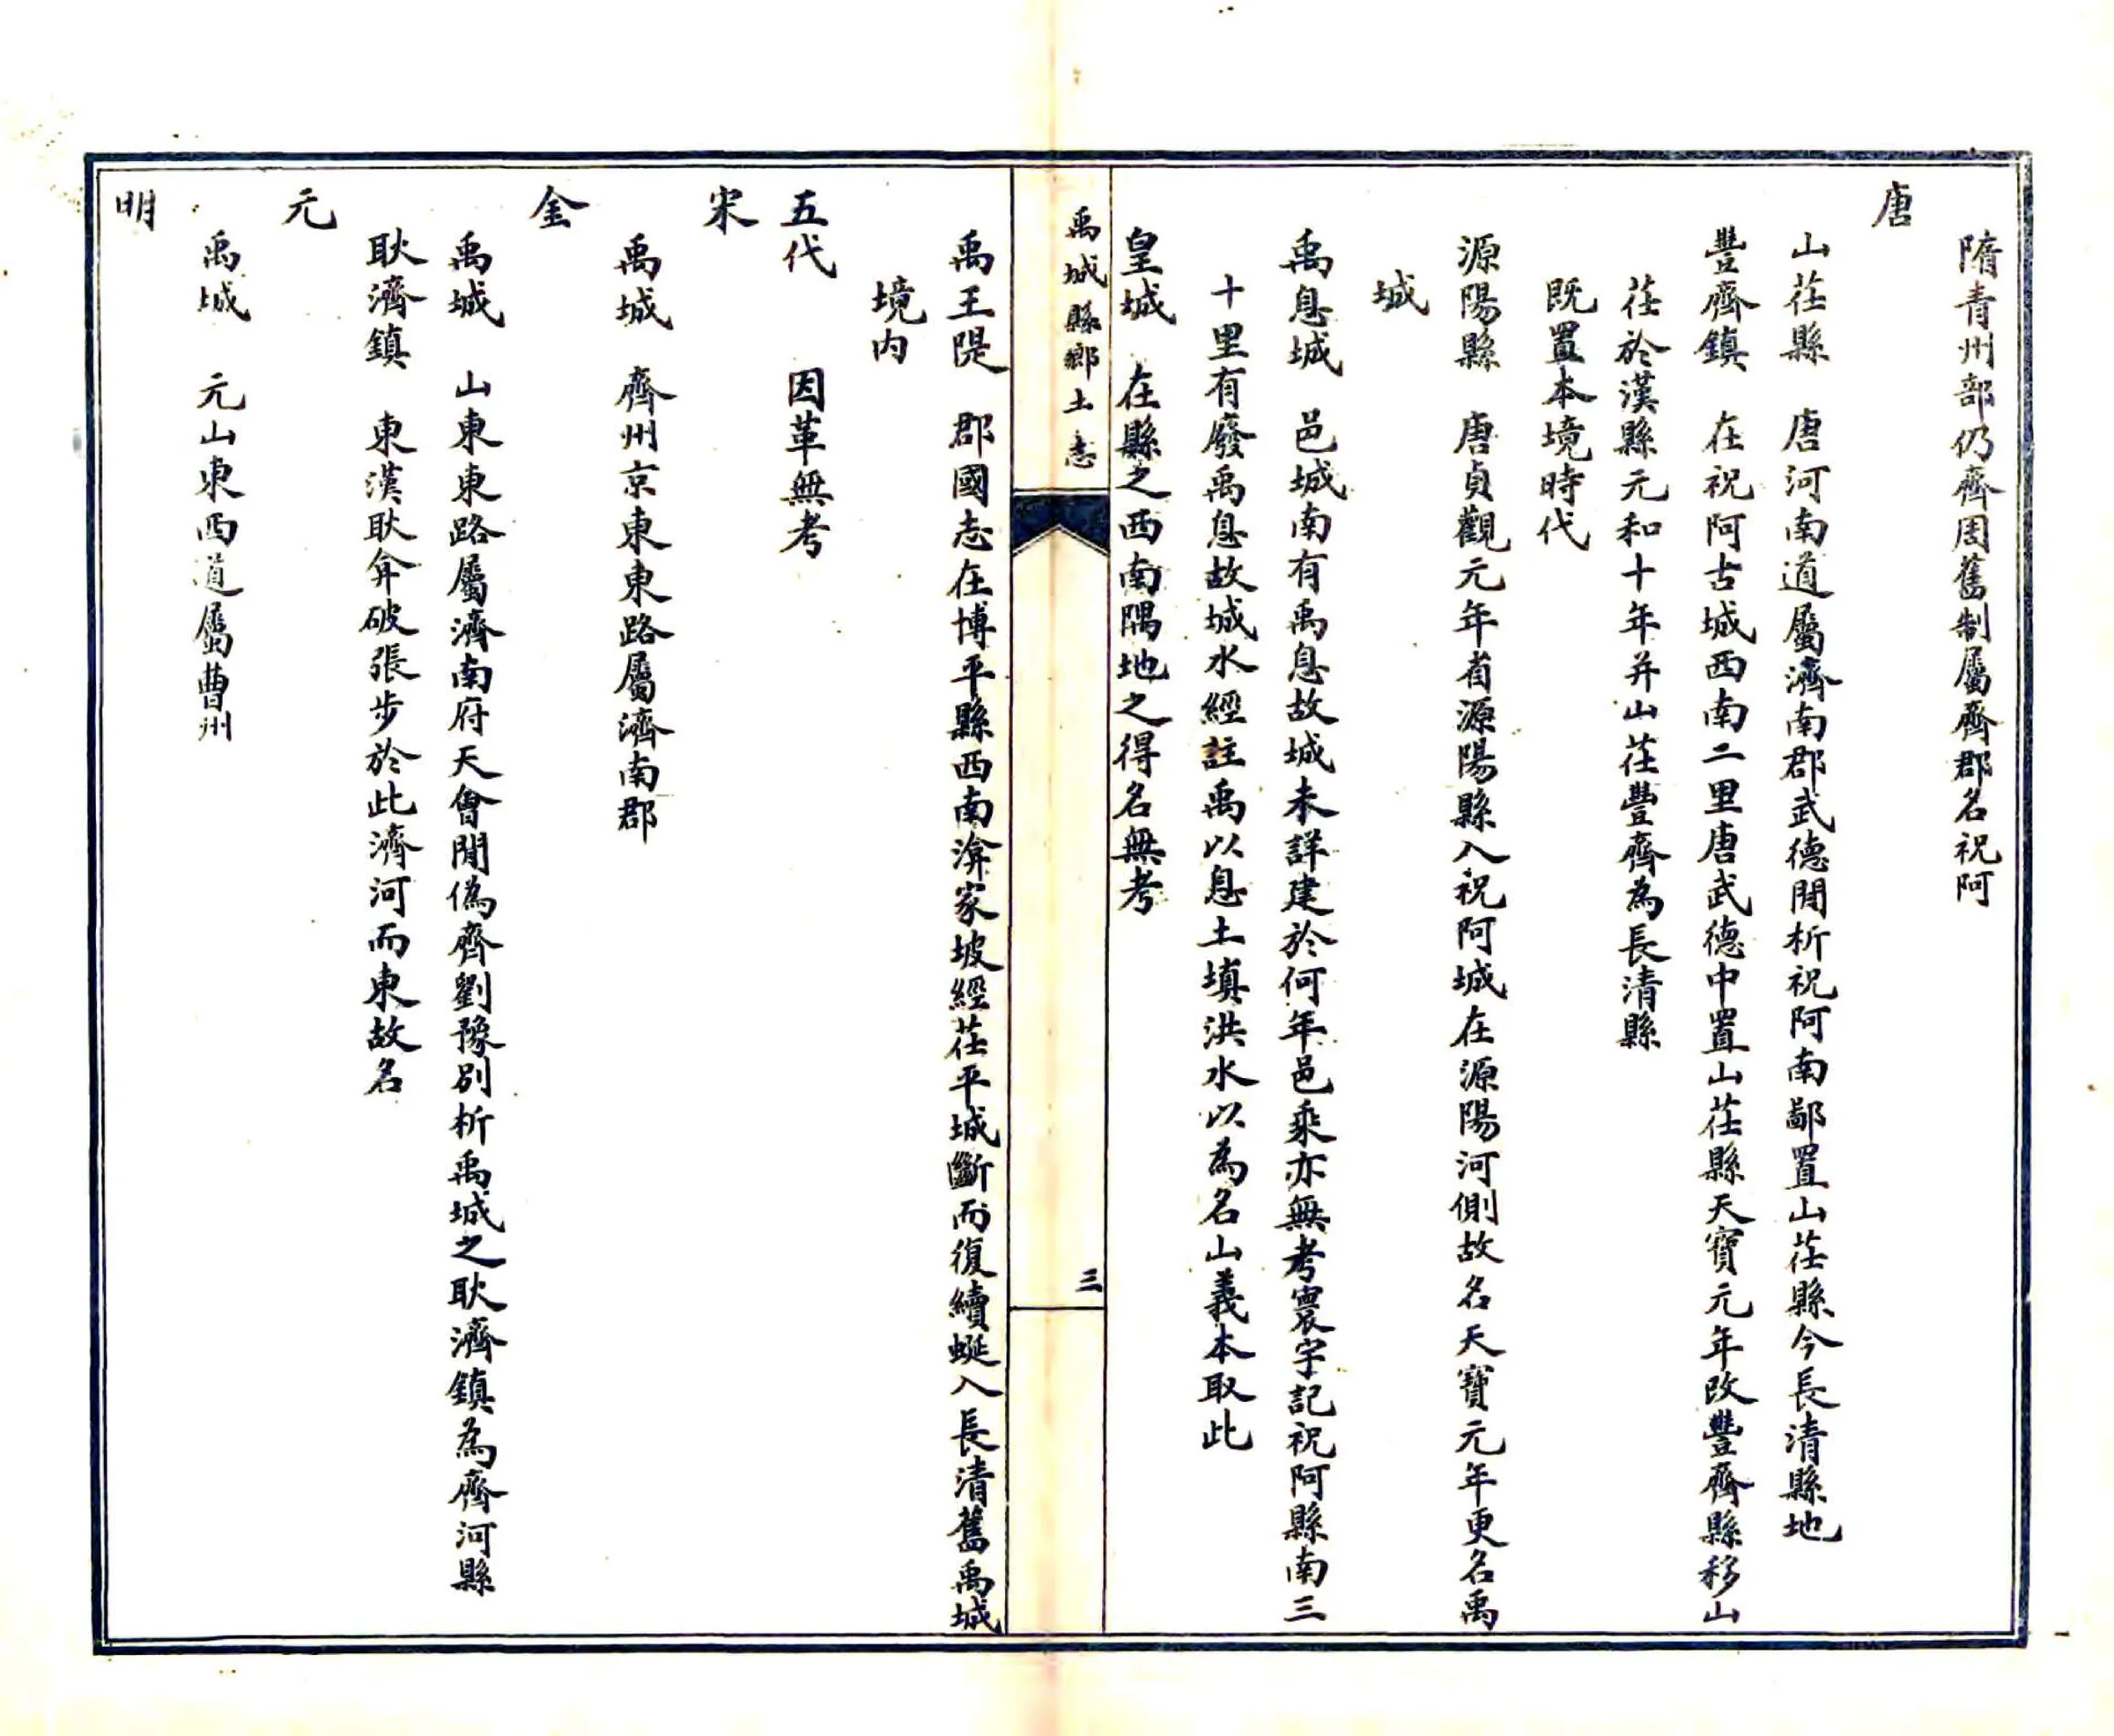 隋青州部仍齊周舊制屬齊郡名祝阿
唐
山茌縣　唐河南道屬濟南郡武德閒析祝阿南鄙置山茌縣今長清縣地
豐齊鎮　在祝阿古城西南二里唐武德中置山茌縣天寶元年改豐齊縣移山
茌於漢縣元和十年并山茌豐齊為長清縣
既置本境時代
源陽縣　唐貞觀元年省源陽縣入祝阿城在源陽河側故名天寶元年更名禹
城
禹息城　邑城南有禹息故城未詳建於何年邑乘亦無考寰宇記祝阿縣南三
十里有廢禹息故城水經註禹以息土填洪水以為名山義本取此
皇城　在縣之西南隅地之得名無考
禹城縣鄉土志
三
禹王隄　郡國志在博平縣西南渰家坡經茌平城斷而復續蜒入長清舊禹城
境內
五代　因革無考
宋
禹城　齊州京東東路屬濟南郡
金
禹城　山東東路屬濟南府天會閒偽齊劉豫別析禹城之耿濟鎮為齊河縣
耿濟鎮　東漢耿弇破張步於此濟河而東故名
元
禹城　元山東西道屬曹州
明